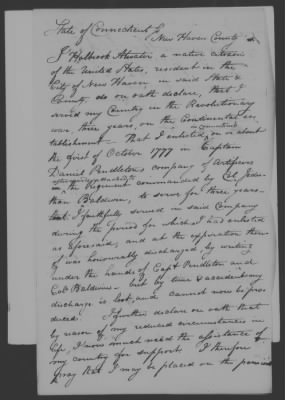 State of Connecticut }
New Haven County } ss
I Holbrook Atwater a native citizen
of the United States, resident in the
City of New Haven in said State &
County do on oath declare, that I
served my Country in the Revolutionary
war, three years, on the Continental es-
tablishment - that I enlisted on or about
the first of October 1777 in Captain
Daniel Pendleton's company of Artificers
in the Regiment commanded by Col. Jedu-
than Baldwin, to serve for three years -
that I faithfully served in said Company
during the period for which I had enlisted
as aforesaid, and at the expiration there-
of was honourably discharged, by writing
under the hands of Capt Pendleton and
Col. Baldwin - but by time & accident my
discharge is lost, and cannot now be pro-
duced. I further declare on oath that
by reason of my reduced circumstances in
life, I now much need the assistance of
my country for support. I therefore
pray that I may be placed on the pension